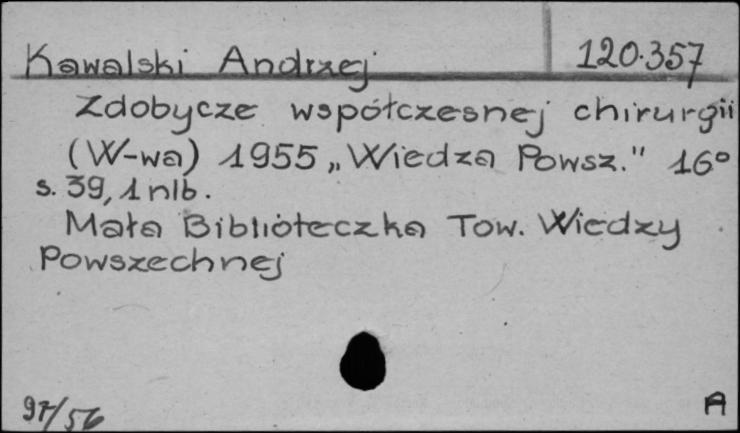 Kawalski Andrzej 120.357
Zdobycze współczesnej chirurgii
(W-wa) 1955 „Wiedza Powsz." 16°
s. 39, 1 nlb.
Mała Biblioteczka Tow. Wiedzy
Powszechnej
97/56 A